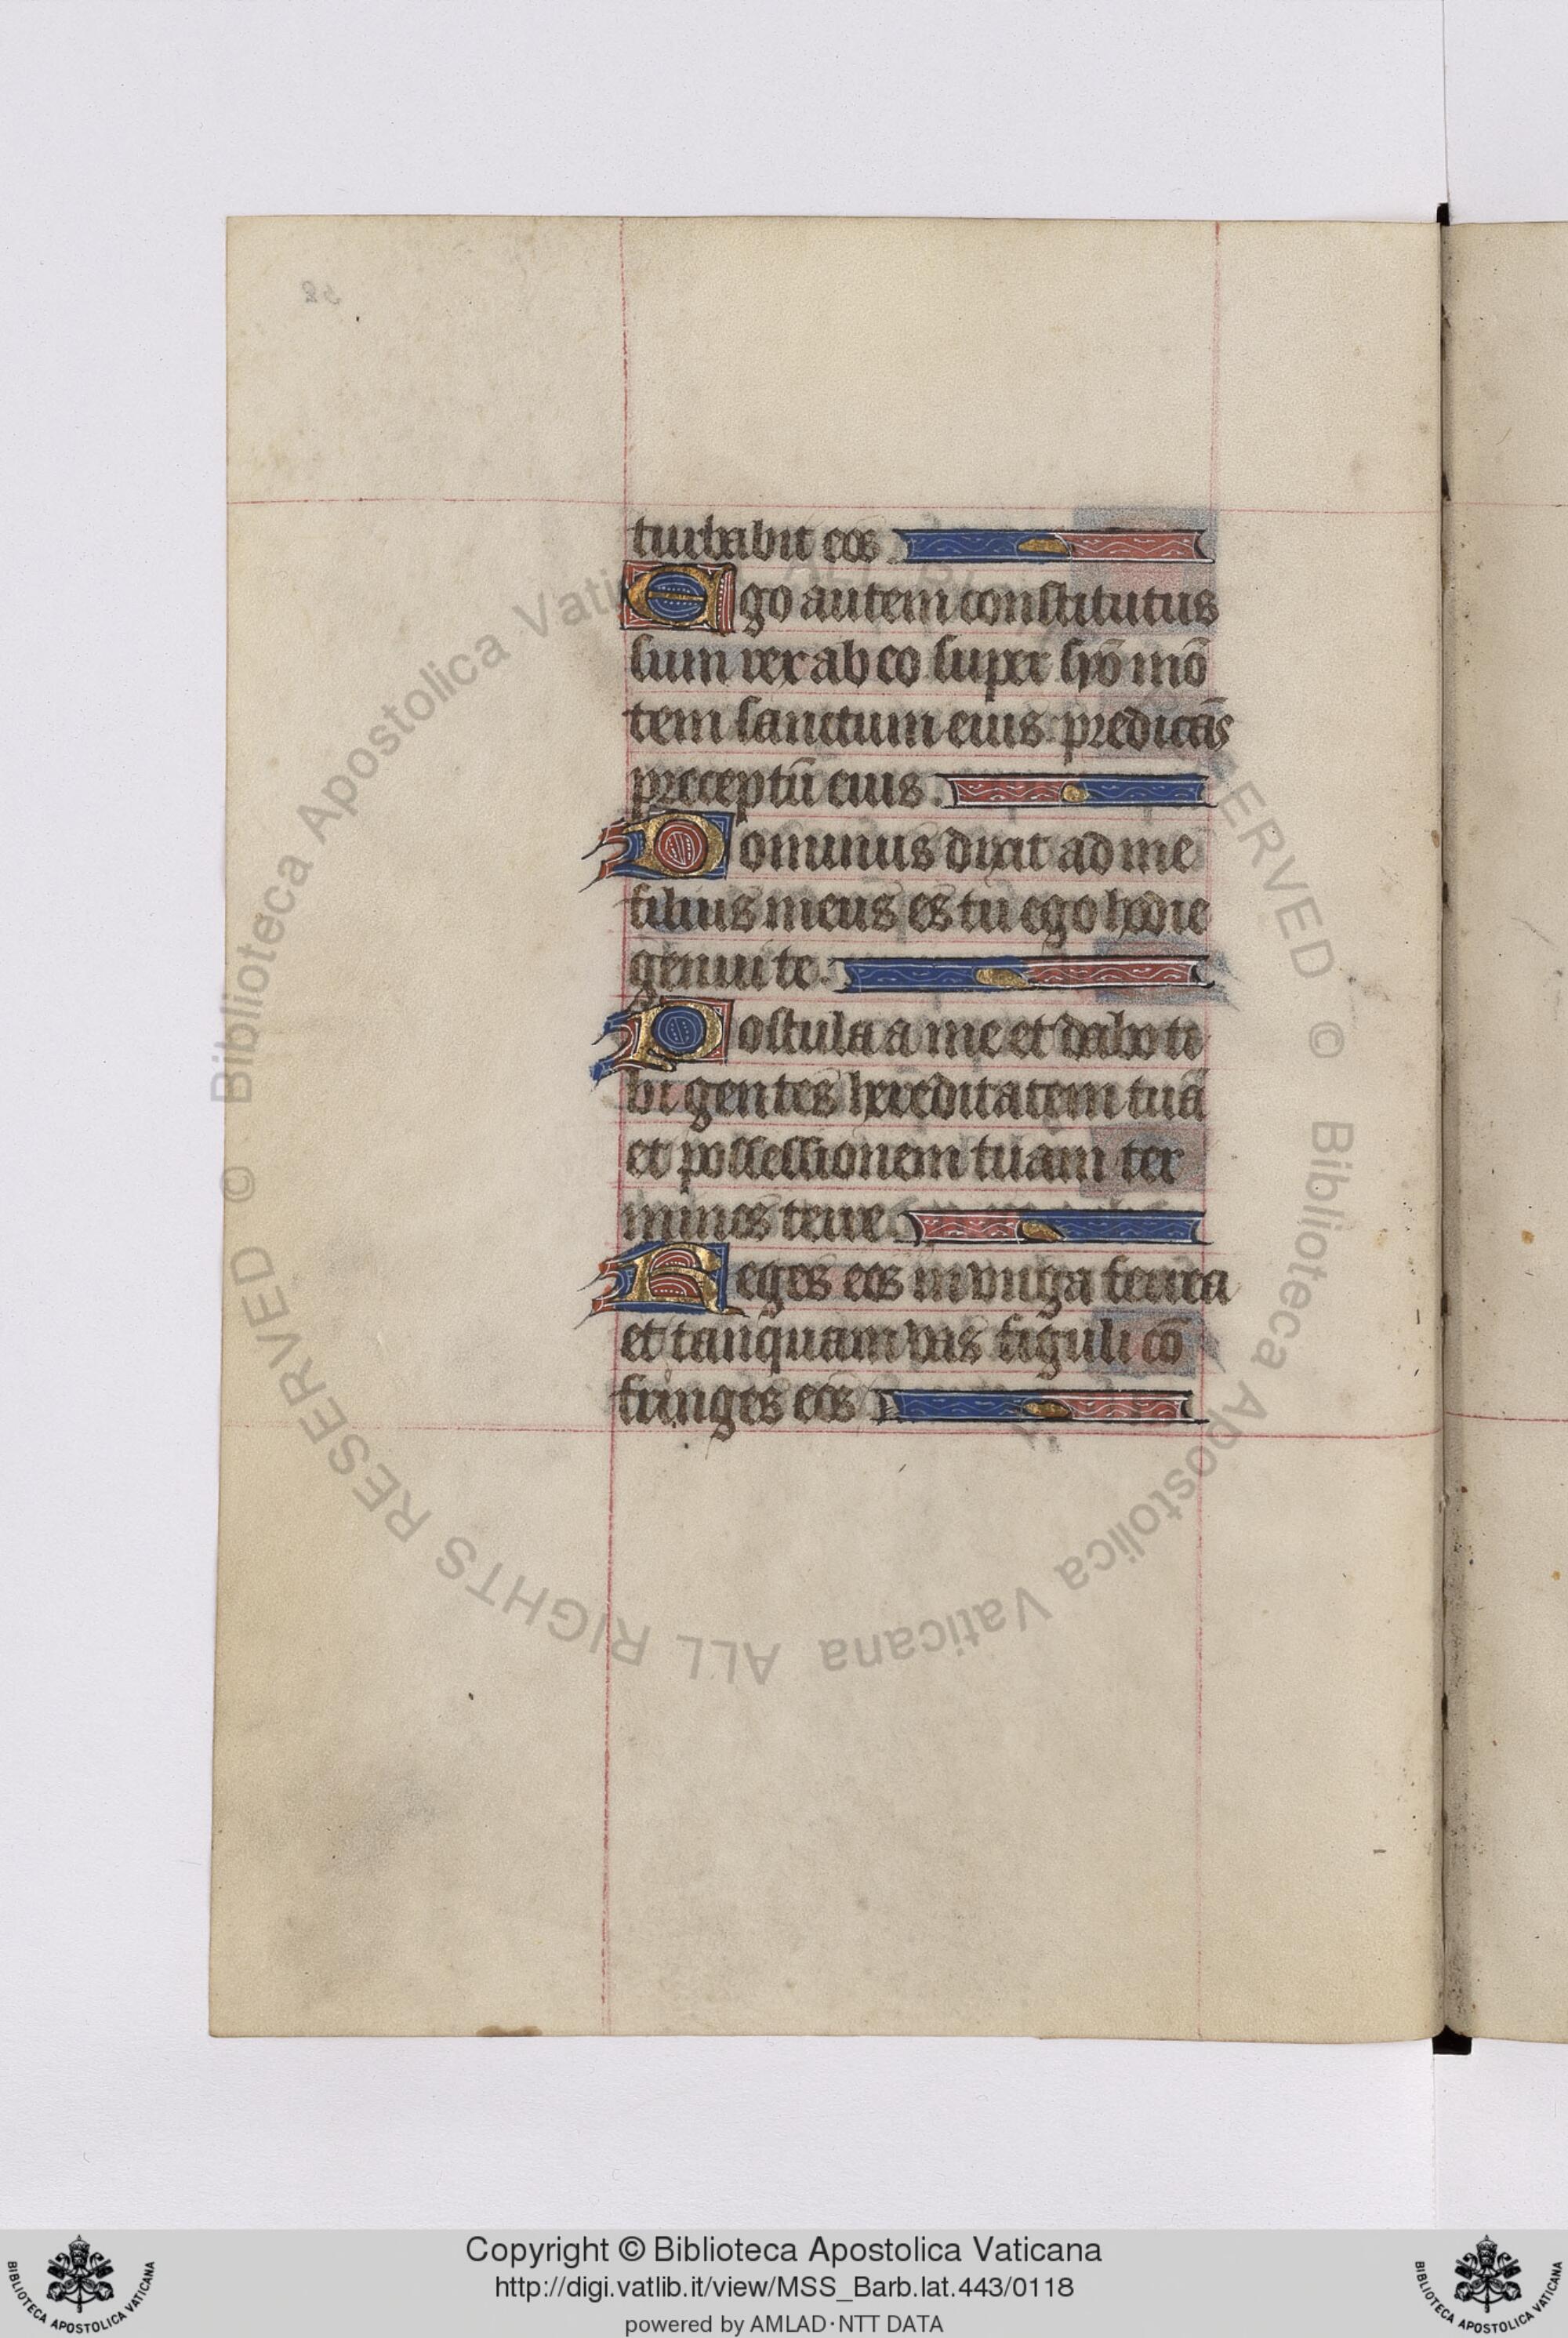 turbabit eos
Ego autem constitutus
sum rex ab eo super syō mō
tem sanctum eius predicās
preceptū eius.
Dominus dixit ad me
filius meus es tu ego hodie
genui te.
Postula a me et dabo ti
bi gentes hereditatem tuā
et possessionem tuam ter
minos terre
Reges eos in virga ferrea
et tanquam vas figuli cō
fringes eos
© Biblioteca Apostolica Vaticana ALL RIGHTS RESERVED © Biblioteca Apostolica Vaticana ALL RIGHTS RESERVED
Copyright © Biblioteca Apostolica Vaticana
http://digi.vatlib.it/view/MSS_Barb.lat.443/0118
powered by AMLAD·NTT DATA
BIBLIOTECA APOSTOLICA VATICANA
BIBLIOTECA APOSTOLICA VATICANA